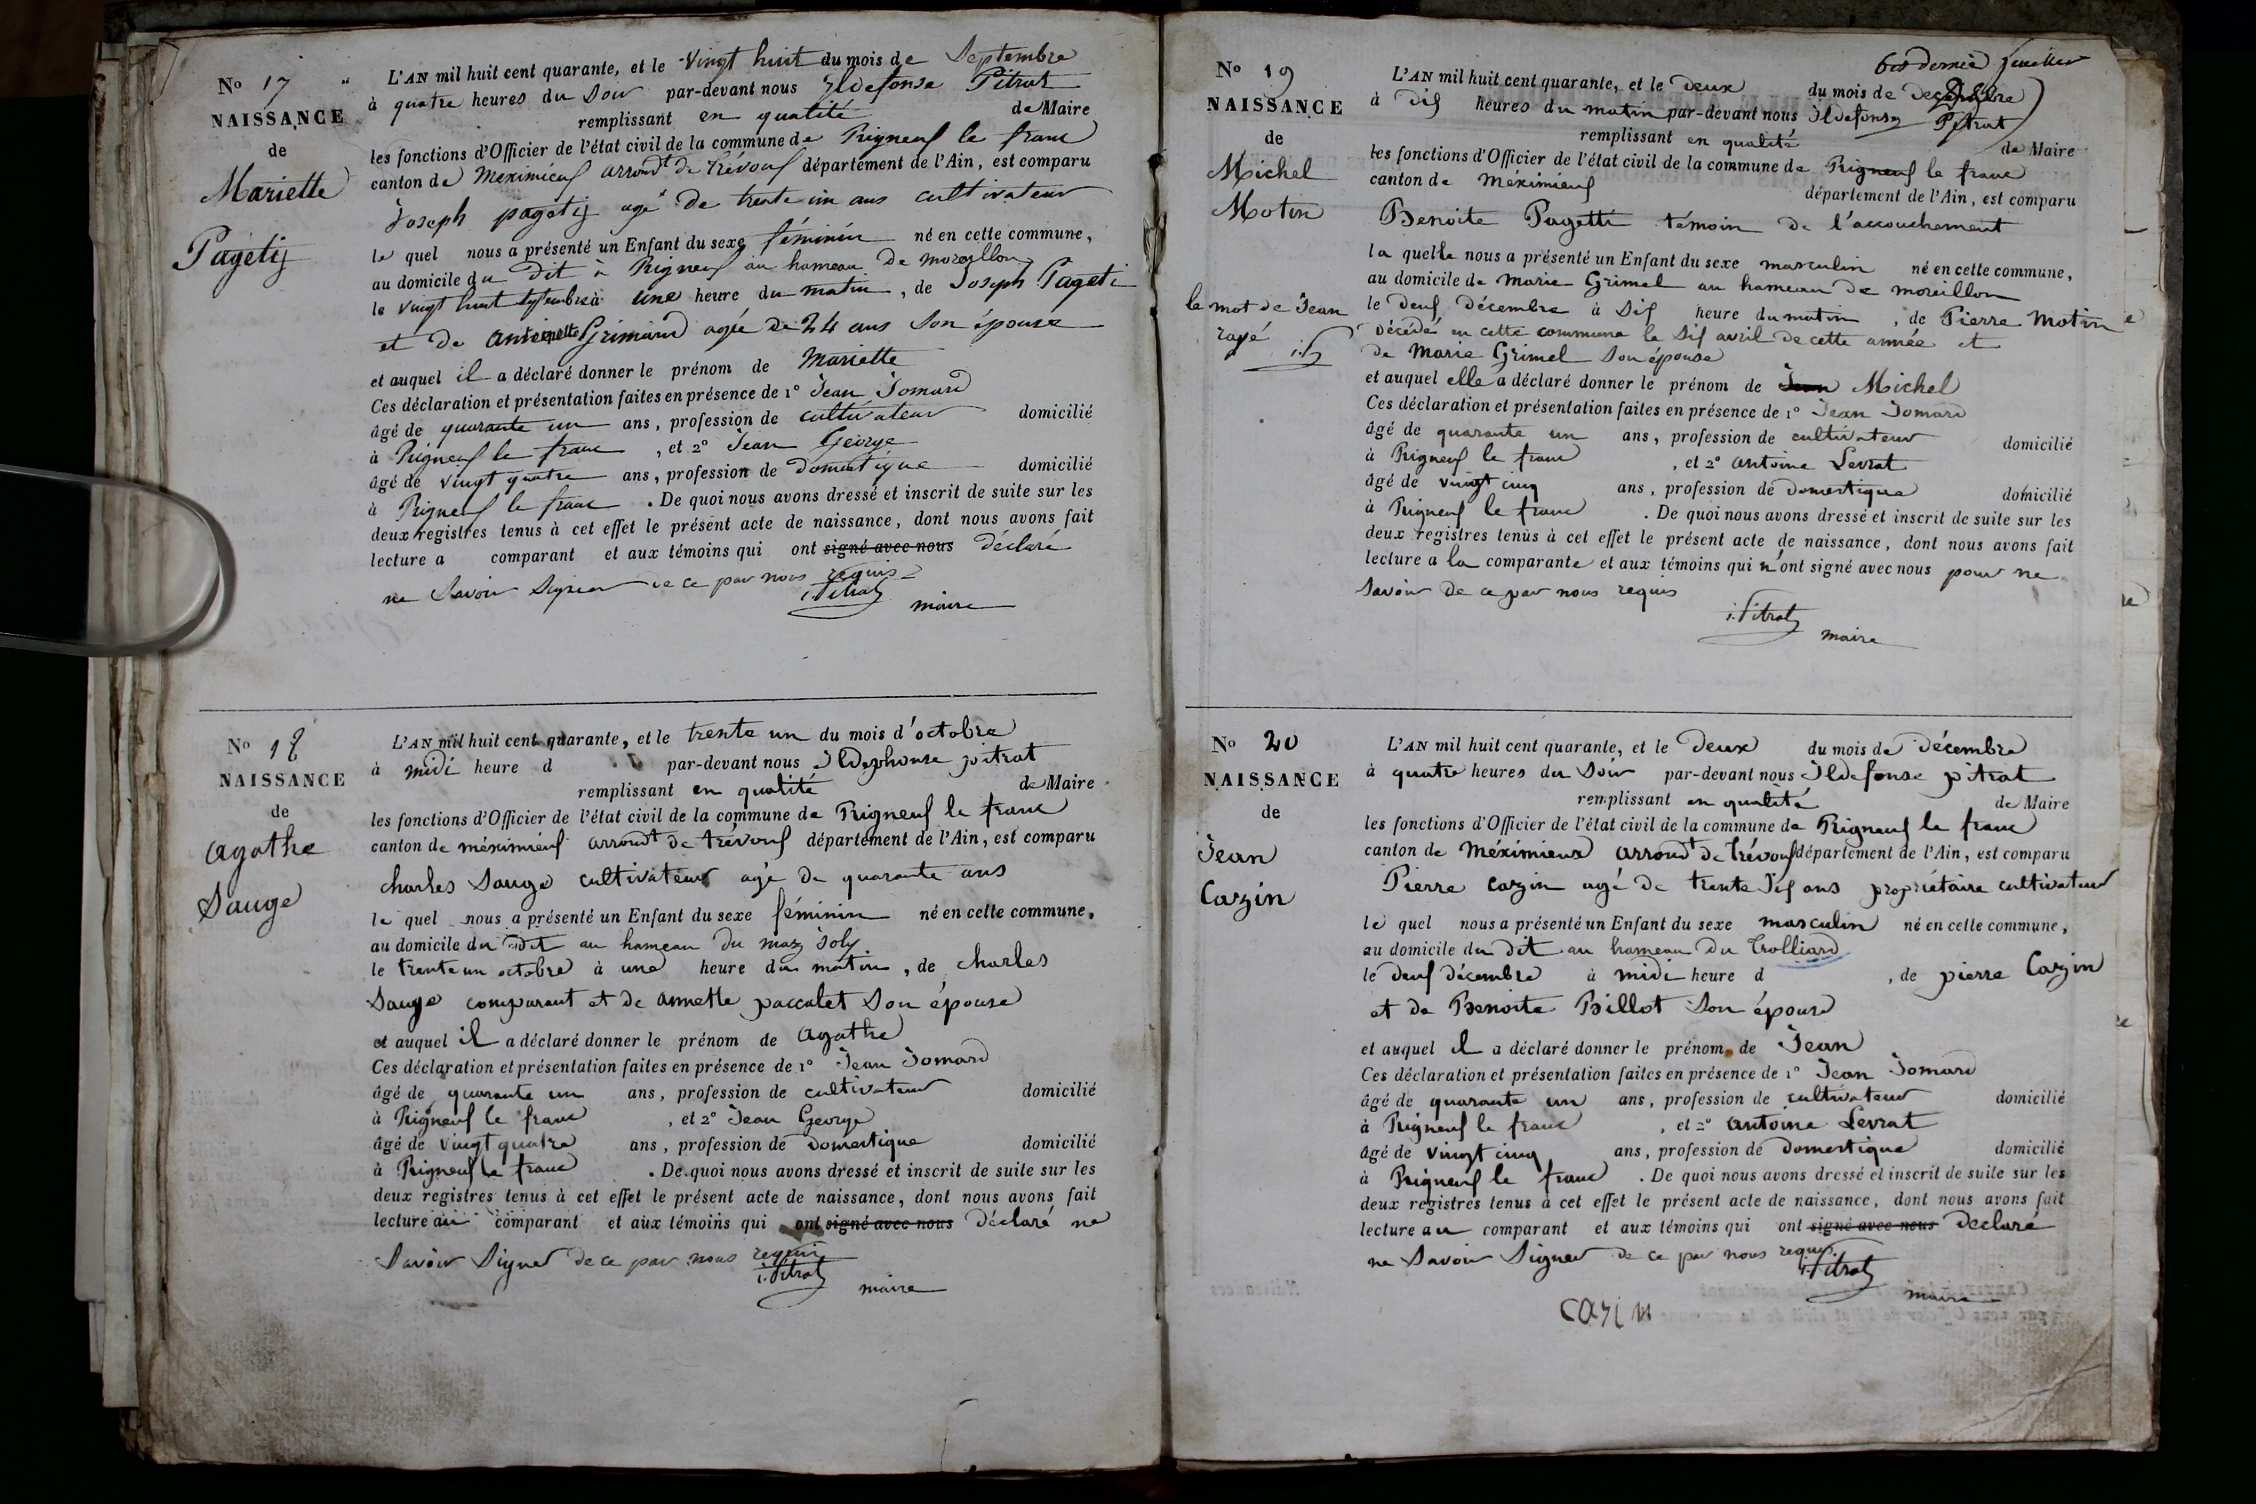 No 17
NAISSANCE
de
Mariette
Pagetiz
L'AN mil huit cent quarante, et le vingt huit du mois de Septembre
à quatre heures du Soir par-devant nous Ildefonse Pitrat
remplissant en qualité de Maire
les fonctions d'Officier de l'état civil de la commune de Rigneux le franc
canton de Meximieux arrondt de Trévoux département de l'Ain, est comparu
Joseph pagetiz agé de trente un ans cultivateur
le quel nous a présenté un Enfant du sexe féminin né en cette commune,
au domicile du dit à Rigneux au hameau de moreillon
le vingt huit septembre à une heure du matin, de Joseph Pageti
et de antoinette Grimand agée de 24 ans Son épouse
et auquel il a déclaré donner le prénom de Mariette
Ces déclaration et présentation faites en présence de 1° Jean Jomard
âgé de quarante un ans, profession de cultivateur domicilié
à Rigneux le franc, et 2° Jean George
âgé de vingt quatre ans, profession de domestique domicilié
à Rigneux le franc. De quoi nous avons dressé et inscrit de suite sur les
deux registres tenus à cet effet le présent acte de naissance, dont nous avons fait
lecture a comparant et aux témoins qui ont signé avec nous déclaré
ne Savoir Signer de ce par nous requis
i. Pitrat maire
No 18
NAISSANCE
de
agathe
Sauge
L'AN mil huit cent quarante, et le trente un du mois d'octobre
à midi heure d par-devant nous Ildephonse pitrat
remplissant en qualité de Maire
les fonctions d'Officier de l'état civil de la commune de Rigneux le franc
canton de méximieux arrondt de trévoux département de l'Ain, est comparu
charles Sauge cultivateur agé de quarante ans
le quel nous a présenté un Enfant du sexe féminin né en cette commune,
au domicile du dit au hameau du maz joly
le trente un octobre à une heure du matin, de charles
Sauge comparant et de annette paccalet Son épouse
et auquel il a déclaré donner le prénom de agathe
Ces déclaration et présentation faites en présence de 1° Jean Jomard
âgé de quarante un ans, profession de cultivateur domicilié
à Rigneux le franc, et 2° Jean George
âgé de vingt quatre ans, profession de domestique domicilié
à Rigneux le franc. De quoi nous avons dressé et inscrit de suite sur les
deux registres tenus à cet effet le présent acte de naissance, dont nous avons fait
lecture au comparant et aux témoins qui ont signé avec nous déclaré ne
Savoir Signer de ce par nous requis
i. Pitrat maire
6es dernié feuillet
No 19
NAISSANCE
de
Michel
Motin
le mot de Jean
rayé
i. P
L'AN mil huit cent quarante, et le deux du mois de décembre
à dix heures du matin par-devant nous Ildefonse Pitrat
remplissant en qualité de Maire
les fonctions d'Officier de l'état civil de la commune de Rigneux le franc
canton de Méximieux département de l'Ain, est comparu
Benoite Pagetti témoin de l'accouchement
la quelle nous a présenté un Enfant du sexe masculin né en cette commune,
au domicile de marie Grimel au hameau de moreillon
le deux décembre à six heure du matin, de Pierre Motin
décédé en cette commune le six avril de cette année et
de Marie Grimel Son épouse
et auquel elle a déclaré donner le prénom de Jean Michel
Ces déclaration et présentation faites en présence de 1° Jean Jomard
âgé de quarante un ans, profession de cultivateur domicilié
à Rigneux le franc, et 2° antoine Levrat
âgé de vingt cinq ans, profession de domestique domicilié
à Rigneux le franc. De quoi nous avons dressé et inscrit de suite sur les
deux registres tenus à cet effet le présent acte de naissance, dont nous avons fait
lecture a la comparante et aux témoins qui n'ont signé avec nous pour ne
Savoir de ce par nous requis
i. Pitrat maire
No 20
NAISSANCE
de
Jean
Cazin
L'AN mil huit cent quarante, et le deux du mois de décembre
à quatre heures du Soir par-devant nous Ildefonse pitrat
remplissant en qualité de Maire
les fonctions d'Officier de l'état civil de la commune de Rigneux le franc
canton de Méximieux arrondt de Trévoux département de l'Ain, est comparu
Pierre Cazin agé de trente six ans propriétaire cultivateur
le quel nous a présenté un Enfant du sexe masculin né en cette commune,
au domicile du dit au hameau du Trolliard
le deux décembre à midi heure d, de pierre Cazin
et de Benoite Billot Son épouse
et auquel il a déclaré donner le prénom de Jean
Ces déclaration et présentation faites en présence de 1° Jean Jomard
âgé de quarante un ans, profession de cultivateur domicilié
à Rigneux le franc, et 2° antoine Levrat
âgé de vingt cinq ans, profession de domestique domicilié
à Rigneux le franc. De quoi nous avons dressé et inscrit de suite sur les
deux registres tenus à cet effet le présent acte de naissance, dont nous avons fait
lecture au comparant et aux témoins qui ont signé avec nous déclaré
ne Savoir Signer de ce par nous requis
i. Pitrat maire
cazin